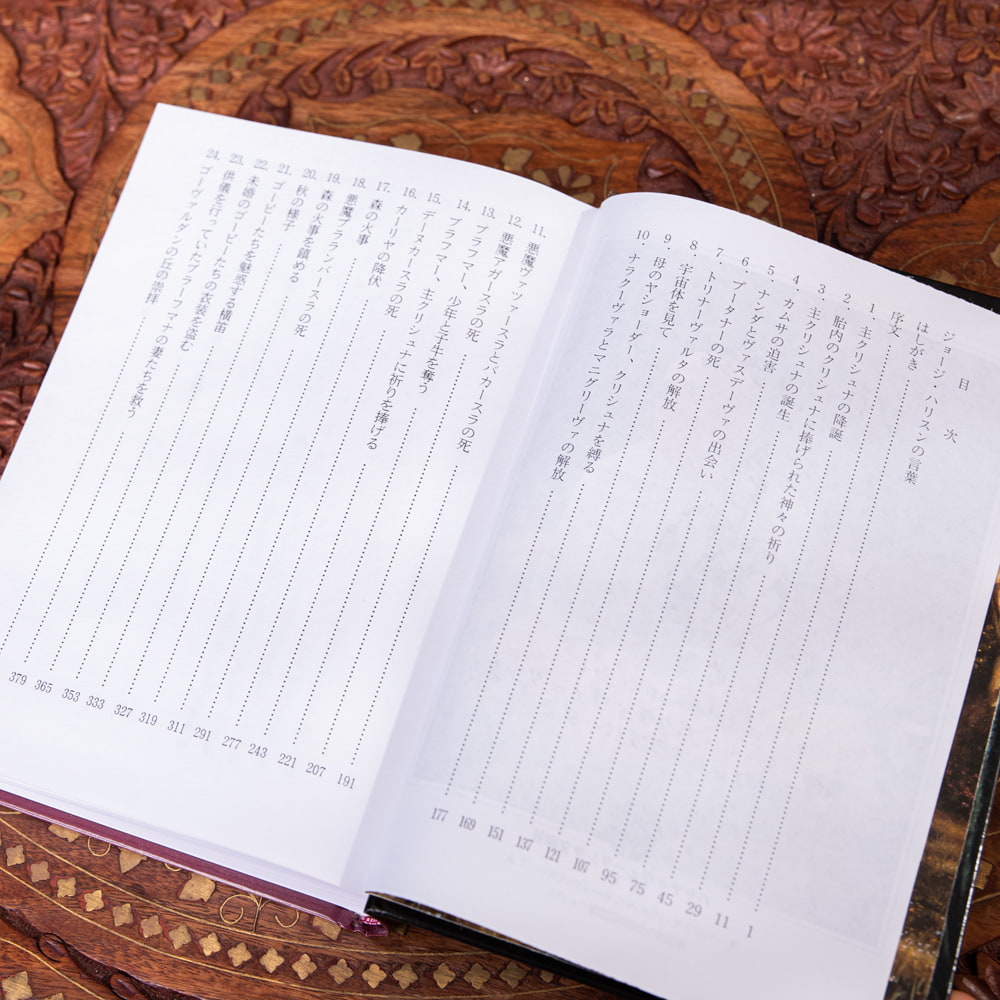 目次
ジョージ・ハリスンの言葉
はしがき
序文
1. 主クリシュナの降誕
2. 胎内のクリシュナに捧げられた神々の祈り
3. 主クリシュナの誕生
4. カムサの迫害
5. ナンダとヴァスデーヴァの出会い
6. プータナーの死
7. トリナーヴァルタの解放
8. 宇宙体を見て
9. 母のヤショーダー、クリシュナを縛る
10. ナラクーヴァラとマニグリーヴァの解放
1 11 29 45 75 95 107 121 137 151 169 177
11. 悪魔ヴァツァースラとバカースラの死
12. 悪魔アガースラの死
13. ブラフマー、少年と子牛を奪う
14. ブラフマー、主クリシュナに祈りを捧げる
15. デーヌカースラの死
16. カーリヤの降伏
17. 森の火事
18. 悪魔プラランバースラの死
19. 森の火事を鎮める
20. 秋の様子
21. ゴーピーたちを魅惑する横笛
22. 未婚のゴーピーたちの衣装を盗む
23. 供儀を行っていたブラーフマナの妻たちを救う
24. ゴーヴァルダンの丘の崇拝
191 207 221 243 277 291 311 319 327 333 353 365 379